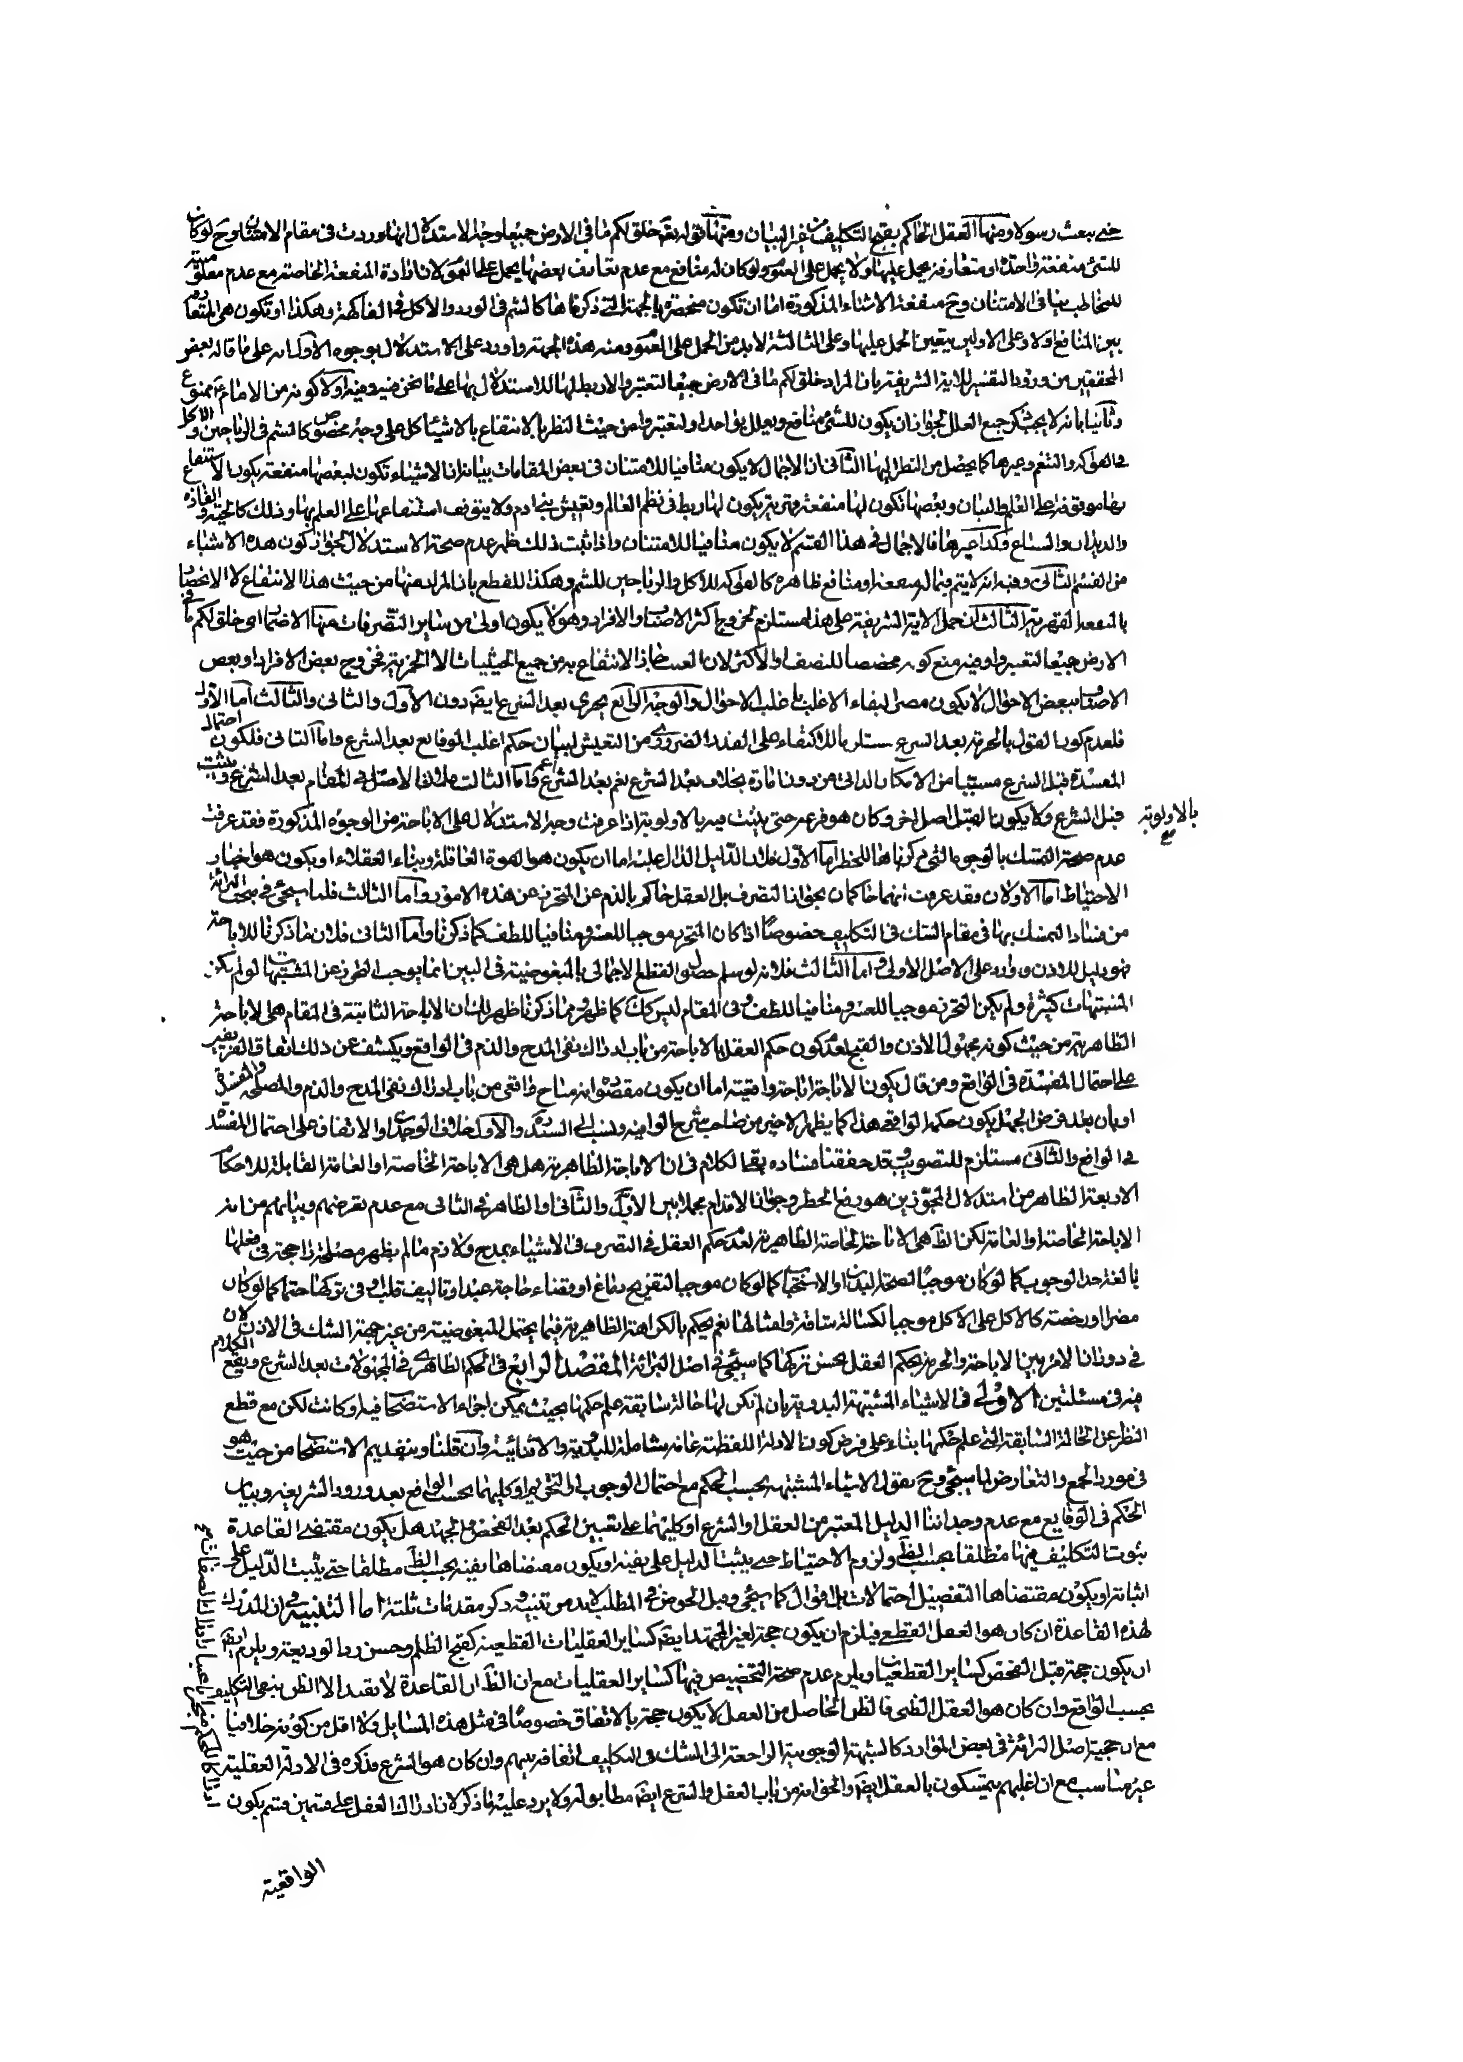 حتى نبعث رسولا ومنها العقل الحاكم بقبح التكليف من غير البيان ومنها قوله تعالى خلق لكم ما في الارض جميعا وجه الاستدلال انها وردت في مقام الامتنان وح لو كان
للشئ منفعة واحدة او متعارفة يحمل عليها ولا يحمل على العموم ولو كان له منافع مع عدم تعارف بعضها يحمل على العموم لان ارادة المنفعة الخاصة مع عدم معلومية
للمخاطب ينافي الامتنان وح منفعة الاشياء المذكورة اما ان تكون منحصرة بالجهة التي ذكرناها كالشم في الورد والاكل في الفاكهة وهكذا او تكون هي المتعارف
بين المنافع اولا وعلى الاولين يتعين الحمل عليها وعلى الثالثة لا بد من الحمل على العموم ومنه هذه الجهة واورد على الاستدلال بوجوه الاول انه على ما قاله بعض
المحققين من ورود التفسير للاية الشريفة بان المراد خلق لكم ما في الارض جميعا لتعتبروا لا ربط لها للاستدلال بها على ما نحن فيه وفيه اولا كونه من الامام ع ممنوع
وثانيا بانه لا يجب ذكر جميع العلل لجواز ان يكون للشئ منافع ويعلل بواحد او لتعتبروا من حيث النظر بالانتفاع بالاشياء كل على وجه مخصوص كالشم في الرياحين والاكل
في الفواكه والتنعم وغيرها كما يحصل من النظر اليها الثاني ان الاجمال لا يكون منافيا للامتنان في بعض المقامات بيانه ان الاشياء تكون لبعضها منفعة يكون الانتفاع
بها موقوفة على العلم والبيان وبعضها تكون لها منفعة قهرية يكون لها ربط في نظم العالم وتعيش بني ادم ولا يتوقف انتفاعها على العلم بها وذلك كالحية والفارة
والديدان والسباع وكذا غيرها فالاجمال في هذا القسم لا يكون منافيا للامتنان واذا ثبت ذلك ظهر عدم صحة الاستدلال لجواز كون هذه الاشياء
من القسم الثاني وفيه انه لا يتم فيما له منفعة او منافع ظاهرة كالفواكه للاكل والرياحين للشم وهكذا للقطع بان المراد منها من حيث هذا الانتفاع لا الانحصار
بالمنفعة القهرية الثالث ان حمل الاية الشريفة على هذا مستلزم لخروج اكثر الاصناف والافراد وهو لا يكون اولى من سائر التصرفات منها الاضمار اي خلق لكم ما في
الارض جميعا لتعتبروا وفيه منع كونه مخصصا للنصف او الاكثر لان العبث اذا الانتفاع به من جميع الحيثيات لا الجزئية فخروج بعض الافراد او بعض
الاصناف ببعض الاحوال لا يكون مضرا لبقاء الاغلب على غلب الاحوال والوجه الرابع يجري بعد الشرع ايضا دون الاول والثاني والثالث اما الاول
فلعدم كون القول بالحرمة بعد الشرع بالاكتفاء على القدر الضروري من التعيش لبيان حكم اغلب الوقايع بعد الشرع واما الثاني فلكون احتمال
المفسدة قبل الشرع مسببا من الامكان الذاتي من دون امارة بخلاف بعد الشرع نعم بعد الشرع اعم واما الثالث فلان الاصل في المقام بعد الشرع ويثبت
قبل الشرع ولا يكون لما قبل اصل اخر وكان هو فرعه حتى يثبت فيه بالاولوية اذا عرفت وجه الاستدلال على الاباحة من الوجوه المذكورة فقد عرفت
بالاولوية
صح
عدم صحة التمسك بالوجوه التي ذكرناها للحظر اما الاول فلان الدليل الدال عليه اما ان يكون هو القوة العاقلة وبناء العقلاء او يكون هو اخبار
الاحتياط اما الاولان فقد عرفت انهما حاكمان بجواز التصرف بل العقل حاكم بالذم عن التحرز عن هذه الامور واما الثالث فلما سيجئ في مبحث البرائة
من فساد التمسك بها في مقام الشك في التكليف خصوصا اذا كان التحرز موجبا للعسر ومنافيا للطف كما ذكرنا واما الثاني فلان ما ذكرنا للاباحة
هو دليل للاذن ووارد على الاصل الاولي واما الثالث فلانه لو سلم حصول القطع الاجمالي بالمبغوضية في البين انما يوجب التحرز عن المشتبهات لو لم يكن
المشتبهات كثيرة ولم يكن التحرز موجبا للعسر ومنافيا للطف وفي المقام ليس كك كما ظهر ومما ذكرنا ظهر لك ان الاباحة الثابتة في المقام هي الاباحة
الظاهرية من حيث كونه مجهول الاذن والقبح لعدم كون حكم العقل بالاباحة من باب ادراك نفي المدح والذم في الواقع ويكشف عن ذلك اتفاق الفريقين
على احتمال المفسدة في الواقع ومن قال بكون الاباحة اباحة واقعية اما ان يكون مقصوده انه مباح واقعي من باب ادراك نفي المدح والذم والمصلحة والمفسدة
او بان بعد فرض الجهل يكون حكمه الواقعي هذا كما يظهر الاخير من صاحب شرح الوافية ونسب الى السيد ره والاول خلاف الوجدان والاتفاق على احتمال المفسدة
في الواقع والثاني مستلزم للتصويب وقد حققنا فساده بقى الكلام في ان الاباحة الظاهرية هل هي الاباحة الخاصة او العامة القابلة للاحكام
الاربعة الظاهر من استدلال المجوزين هو رفع الحظر وجواز الاقدام مجملا بين الاول والثاني او الظاهر في الثاني مع عدم تعرضهم وبيانهم من انه
الاباحة الخاصة او العامة لكن الظ هي الاباحة الخاصة الظاهرية لعدم حكم العقل في التصرف في الاشياء بمدح ولا ذم ما لم يظهر مصلحة راجحة في فعلها
بالغة حد الوجوب كما لو كان موجبا لصحة البدن او الاستحباب كما لو كان موجبا لتفريح دماغ او قضاء حاجة عبد او تاليف قلب او في تركها حتما كما لو كان
مضرا او رخصة كالاكل على الاكل موجبا لكسالة شاقة وامثالها نعم يحكم بالكراهة الظاهرية فيما يحتمل المبغوضية من غير جهة الشك في الاذن لان
في دوران الامر بين الاباحة والحرمة يحكم العقل بحسن تركها كما سيجئ في اصل البرائة المقصد الرابع في الحكم الظاهري في المجهولات بعد الشرع ويقع الكلام
فيه في مسئلتين الاولى في الاشياء المشتبهة البدوية بان لم تكن لها حالة سابقة علم حكمها بحيث يمكن اجراء الاستصحاب فيه او كانت لكن مع قطع
النظر عن الحالة السابقة التي علم حكمها بناء على فرض كون الادلة اللفظية عامة شاملة للبدوية والاثنائية وان قلنا بتقديم الاستصحاب من حيث هو
في مورد الجمع والتعارض لما سيجئ وح نقول الاشياء المشتبهة بحسب الحكم مع احتمال الوجوب او التحريم او كليهما بحسب الواقع بعد ورود الشريعة وبيان
الحكم في الوقايع مع عدم وجداننا الدليل المعتبر من العقل او الشرع او كليهما على تعيين الحكم بعد الفحص والجهد هل يكون مقتضى القاعدة
ثبوت التكليف فيها مطلقا بحسب الظ ولزوم الاحتياط حتى يثبت الدليل على نفيه او يكون مقتضاها نفيه بحسب الظ مطلقا حتى يثبت الدليل على
اثباته او يكون مقتضاها التفصيل احتمالات بل اقوال كما سيجئ وقبل الخوض في المطلب لا بد من تنبيه وذكر مقدمات ثلثة اما التنبيه فهو ان المدرك
لهذه القاعدة ان كان هو العقل القطعي فيلزم ان يكون حجة لغير المجتهد ايضا كساير العقليات القطعية كقبح الظلم وحسن رد الوديعة ويلزم ايضا
ان يكون حجة قبل الفحص كساير القطعيات ويلزم عدم صحة التخصيص فيها كساير العقليات مع ان الظ ان القاعدة لا تفيد الا الظن بنفي التكليف
بحسب الواقع وان كان هو العقل الظني فالظن الحاصل من العقل لا يكون حجة بالاتفاق خصوصا في مثل هذه المسائل ولا اقل من كونه خلافيا
مع ان حجية اصل البرائة في بعض الموارد كالشبهة الوجوبية الراجعة الى الشك في التكليف اتفاقية بينهم وان كان هو الشرع فذكره في الادلة العقلية
غير مناسب مع ان اغلبهم يتمسكون بالعقل ايضا والحق انه من باب العقل والشرع ايضا مطابق له ولا يرد عليه ما ذكر لان ادراك العقل على قسمين قسم يكون
الواقعية